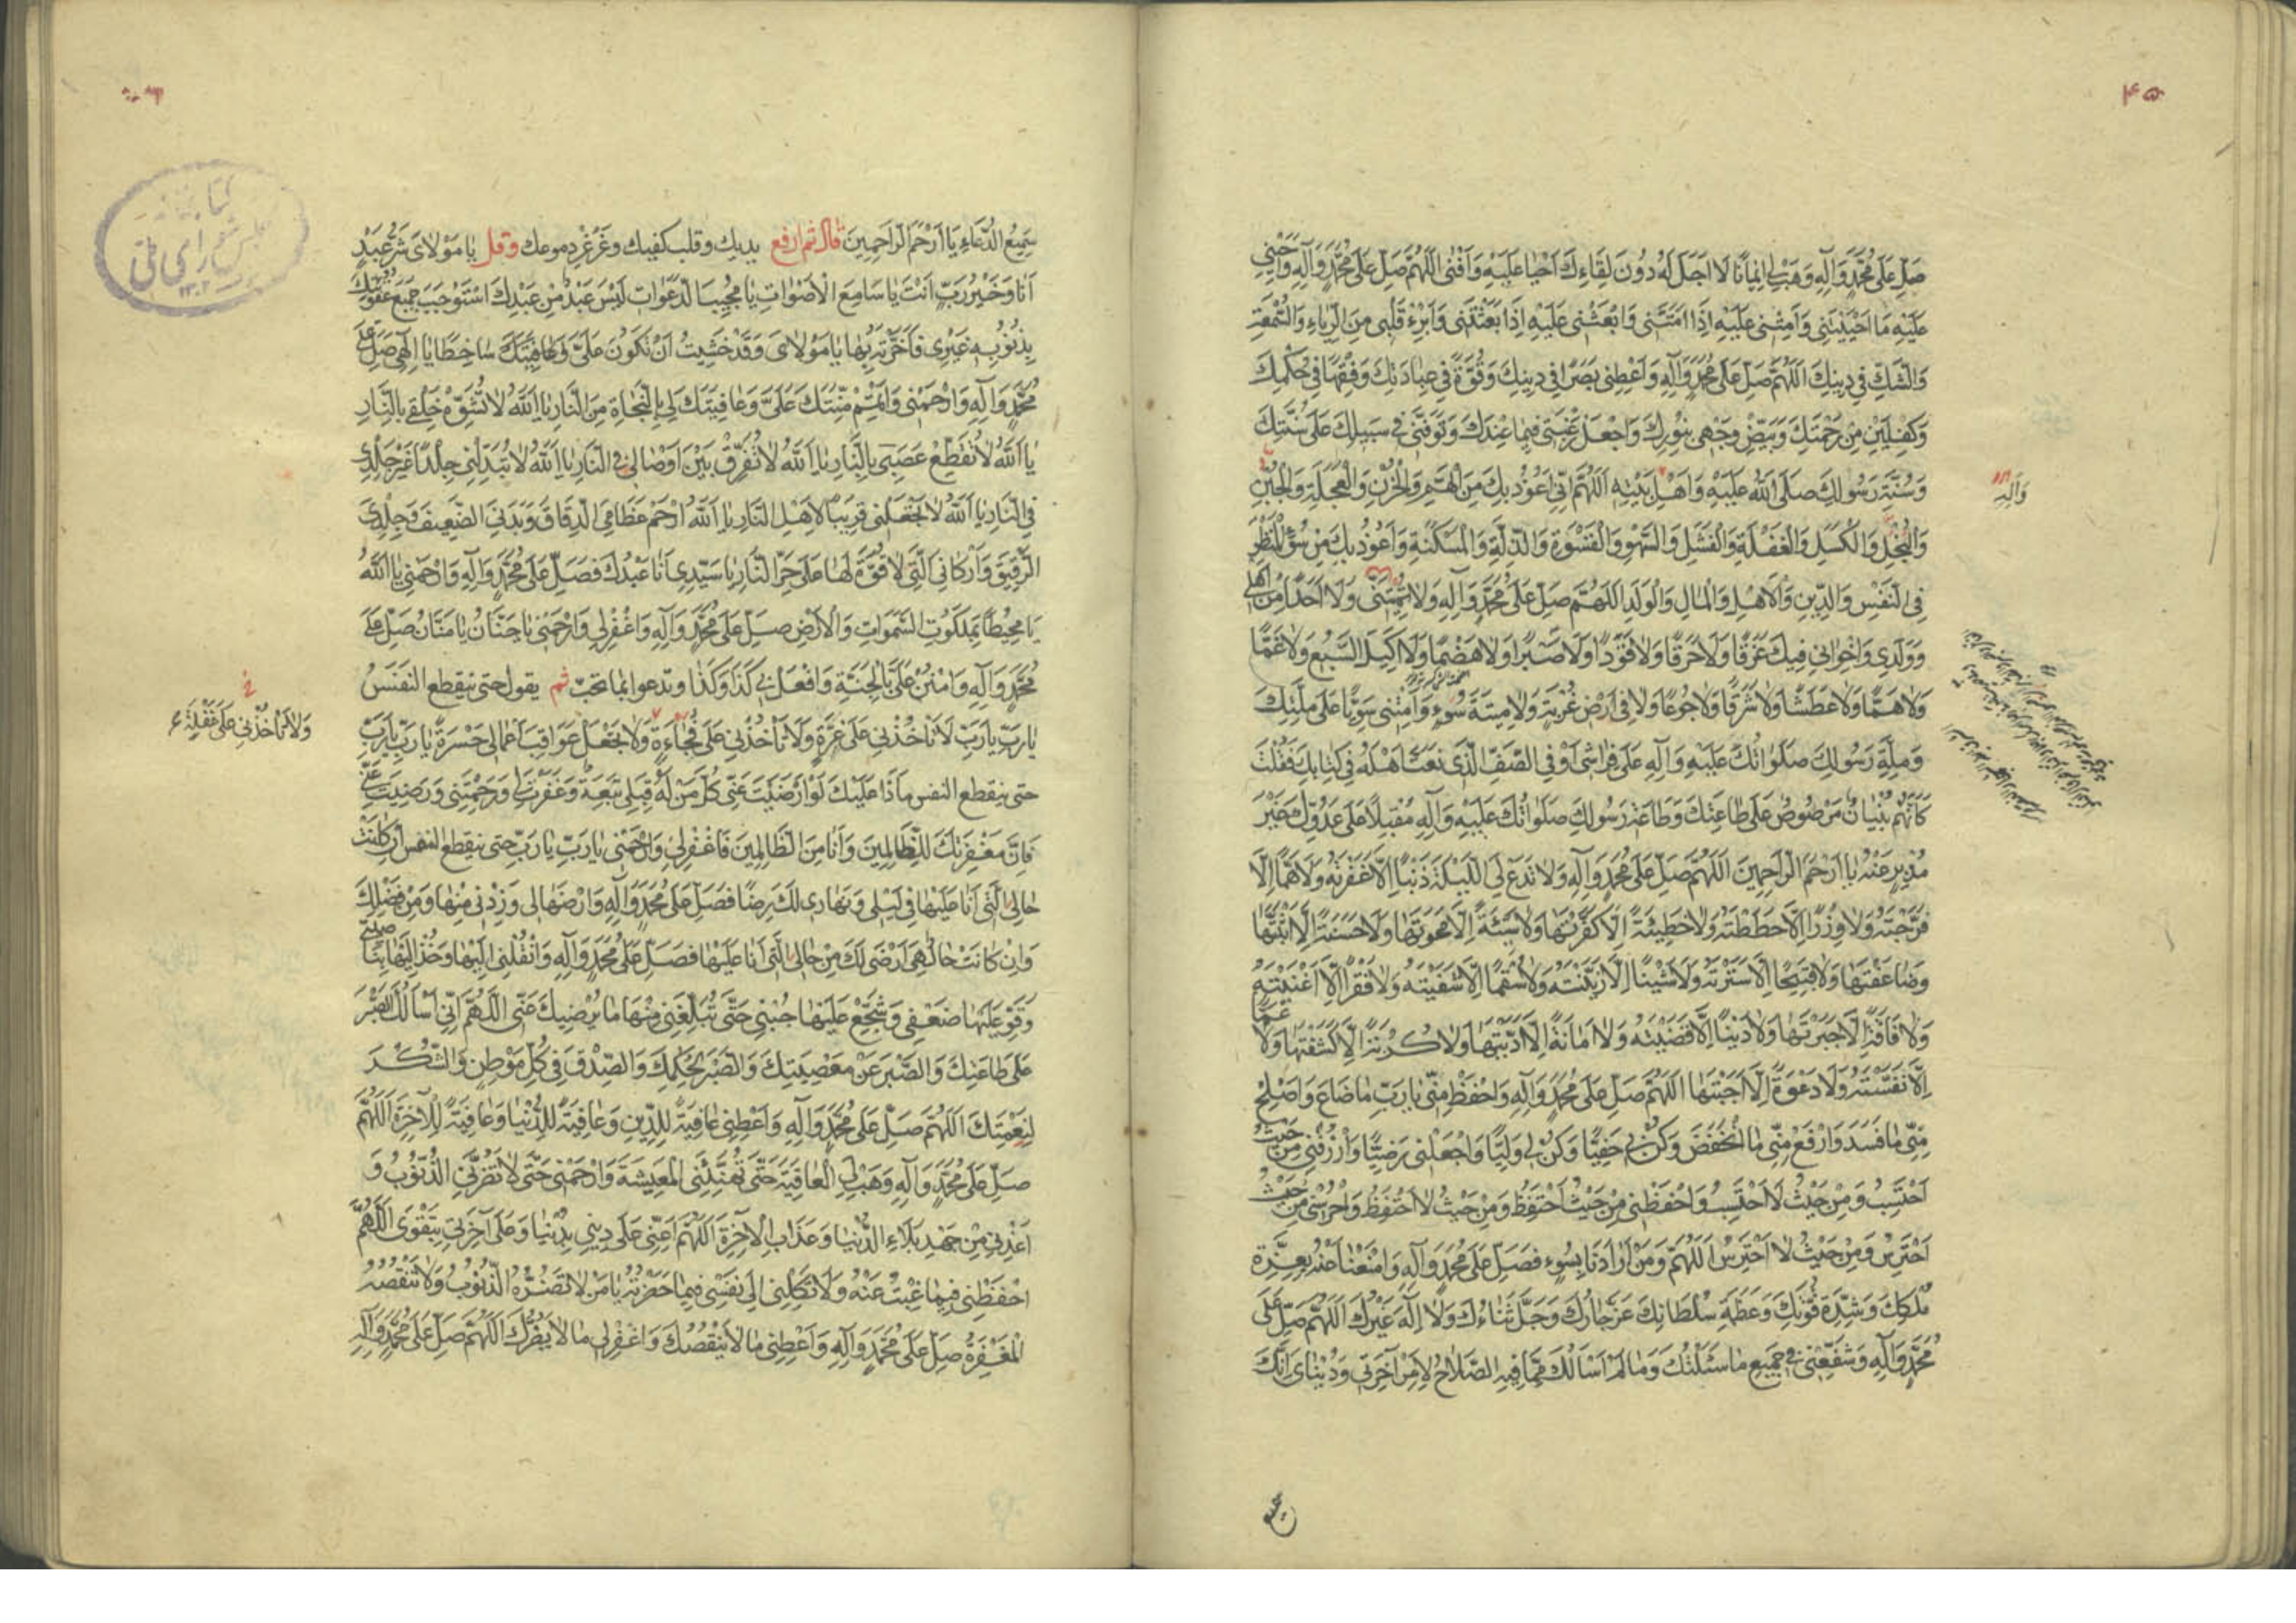 صَلِّ عَلَى مُحَمَّدٍ وَآلِهِ وَهَبْ لِي اِيمَانًا لَا اَجَلَ لَهُ دُونَ لِقَاءِكَ اَحْيَا عَلَيْهِ وَاَفْنَى اللَّهُمَّ صَلِّ عَلَى مُحَمَّدٍ وَآلِهِ وَاَحْيِنِي
عَلَيْهِ مَا اَحْيَيْتَنِي وَاَمِتْنِي عَلَيْهِ اِذَا اَمَتَّنِي وَابْعَثْنِي عَلَيْهِ اِذَا بَعَثْتَنِي وَاَبْرِءْ قَلْبِي مِنَ الرِّيَاءِ وَالسُّمْعَةِ
وَالشَّكِّ فِي دِينِكَ اللَّهُمَّ صَلِّ عَلَى مُحَمَّدٍ وَآلِهِ وَاَعْطِنِي بَصَرًا فِي دِينِكَ وَقُوَّةً فِي عِبَادَتِكَ وَفِقْهًا فِي حُكْمِكَ
وَكِفْلَيْنِ مِنْ رَحْمَتِكَ وَبَيِّضْ وَجْهِي بِنُورِكَ وَاجْعَلْ رَغْبَتِي فِيمَا عِنْدَكَ وَتَوَفَّنِي فِي سَبِيلِكَ عَلَى سُنَّتِكَ
وَسُنَّةِ رَسُولِكَ صَلَّى اللهُ عَلَيْهِ وَاَهْلِ بَيْتِهِ اَللَّهُمَّ اِنِّي اَعُوذُ بِكَ مِنَ الْهَمِّ وَالْحُزْنِ وَالْعَجَلَةِ وَالْجُبْنِ
وَآلِهِ
وَالْبُخْلِ وَالْكَسَلِ وَالْغَفْلَةِ وَالْفَشَلِ وَالسَّهْوِ وَالْقَسْوَةِ وَالذِّلَّةِ وَالْمَسْكَنَةِ وَاَعُوذُ بِكَ مِنْ سُوْءِ الْمَنْظَرِ
فِي النَّفْسِ وَالدِّينِ وَالْاَهْلِ وَالْمَالِ وَالْوَلَدِ اللَّهُمَّ صَلِّ عَلَى مُحَمَّدٍ وَآلِهِ وَلَا تُمِتْنِي وَلَا اَحَدًا مِنْ اَهْلِي
وَوَلَدِي وَاِخْوَانِي فِيكَ غَرَقًا وَلَا حَرَقًا وَلَا قَوَدًا وَلَا صَبْرًا وَلَا هَضْمًا وَلَا اَكِيلَ السَّبُعِ وَلَا غَمًّا
وَلَا هَمًّا وَلَا عَطَشًا وَلَا شَرَقًا وَلَا جُوعًا وَلَا فِي اَرْضِ غُرْبَةٍ وَلَا مِيتَةَ سُوْءٍ وَاَمِتْنِي سَوِيًّا عَلَى مِلَّتِكَ
وَمِلَّةِ رَسُولِكَ صَلَوَاتُكَ عَلَيْهِ وَآلِهِ عَلَى فِرَاشِي اَوْ فِي الصَّفِّ الَّذِي نَعَتَّ اَهْلَهُ فِي كِتَابِكَ فَقُلْتَ
كَاَنَّهُمْ بُنْيَانٌ مَرْصُوصٌ عَلَى طَاعَتِكَ وَطَاعَةِ رَسُولِكَ صَلَوَاتُكَ عَلَيْهِ وَآلِهِ مُقْبِلًا عَلَى عَدُوِّكَ غَيْرَ
مُدْبِرٍ عَنْهُ يَا اَرْحَمَ الرَّاحِمِينَ اَللَّهُمَّ صَلِّ عَلَى مُحَمَّدٍ وَآلِهِ وَلَا تَدَعْ لِي اللَّيْلَةَ ذَنْبًا اِلَّا غَفَرْتَهُ وَلَا هَمًّا اِلَّا
فَرَّجْتَهُ وَلَا وِزْرًا اِلَّا حَطَطْتَهُ وَلَا خَطِيئَةً اِلَّا كَفَّرْتَهَا وَلَا سَيِّئَةً اِلَّا مَحَوْتَهَا وَلَا حَسَنَةً اِلَّا اَثْبَتَّهَا
وَضَاعَفْتَهَا وَلَا قَبِيحًا اِلَّا سَتَرْتَهُ وَلَا شَيْنًا اِلَّا زَيَّنْتَهُ وَلَا سُقْمًا اِلَّا شَفَيْتَهُ وَلَا فَقْرًا اِلَّا اَغْنَيْتَهُ
وَلَا فَاقَةً اِلَّا جَبَرْتَهَا وَلَا دَيْنًا اِلَّا قَضَيْتَهُ وَلَا اَمَانَةً اِلَّا اَدَّيْتَهَا وَلَا كُرْبَةً اِلَّا كَشَفْتَهَا وَلَا غَمًّا
اِلَّا نَفَّسْتَهُ وَلَا دَعْوَةً اِلَّا اَجَبْتَهَا اللَّهُمَّ صَلِّ عَلَى مُحَمَّدٍ وَآلِهِ وَاحْفَظْ مِنِّي يَا رَبِّ مَا ضَاعَ وَاَصْلِحْ
مِنِّي مَا فَسَدَ وَارْفَعْ مِنِّي مَا انْخَفَضَ وَكُنْ بِي حَفِيًّا وَكُنْ لِي وَلِيًّا وَاجْعَلْنِي رَضِيًّا وَارْزُقْنِي مِنْ حَيْثُ
اَحْتَسِبُ وَمِنْ حَيْثُ لَا اَحْتَسِبُ وَاحْفَظْنِي مِنْ حَيْثُ اَحْتَفِظُ وَمِنْ حَيْثُ لَا اَحْتَفِظُ وَاحْرُسْنِي مِنْ حَيْثُ
اَحْتَرِسُ وَمِنْ حَيْثُ لَا اَحْتَرِسُ اَللَّهُمَّ وَمَنْ اَرَادَنَا بِسُوْءٍ فَصَلِّ عَلَى مُحَمَّدٍ وَآلِهِ وَامْنَعْنَا مِنْهُ بِعِزَّةِ
مُلْكِكَ وَشِدَّةِ قُوَّتِكَ وَعَظَمَةِ سُلْطَانِكَ عَزَّ جَارُكَ وَجَلَّ ثَنَاءُكَ وَلَا اِلَهَ غَيْرُكَ اَللَّهُمَّ صَلِّ عَلَى
مُحَمَّدٍ وَآلِهِ وَشَفِّعْنِي فِي جَمِيعِ مَا سَئَلْتُكَ وَمَا لَمْ اَسْاَلْكَ مِمَّا فِيهِ الصَّلَاحُ لِاَمْرِ آخِرَتِي وَدُنْيَايَ اِنَّكَ
سَمِيعُ الدُّعَاءِ يَا اَرْحَمَ الرَّاحِمِينَ قال ثم ارفع يديك وقلب كفيك وغرغر دموعك وقل يَا مَوْلَايَ شَرُّ عَبْدٍ
اَنَا وَخَيْرُ رَبٍّ اَنْتَ يَا سَامِعَ الْاَصْوَاتِ يَا مُجِيبَ الدَّعَوَاتِ لَيْسَ عَبْدٌ مِنْ عَبِيدِكَ اسْتَوْجَبَ جَمِيعَ عُقُوبَتِكَ
بِذُنُوبِهِ غَيْرِي فَاَخَّرْتَهُ بِهَا يَا مَوْلَايَ وَقَدْ خَشِيتُ اَنْ تَكُونَ عَلَيَّ سَاخِطًا يَا اِلَهِي صَلِّ عَلَى
مُحَمَّدٍ وَآلِهِ وَارْحَمْنِي وَاَتْمِمْ مِنَّتَكَ عَلَيَّ وَعَافِيَتَكَ لِي بِالنَّجَاةِ مِنَ النَّارِ يَا اَللهُ لَا تُشَوِّهْ خَلْقِي بِالنَّارِ
يَا اَللهُ لَا تُقَطِّعْ عَصَبِي بِالنَّارِ يَا اَللهُ لَا تُفَرِّقْ بَيْنَ اَوْصَالِي فِي النَّارِ يَا اَللهُ لَا تُبَدِّلْنِي جِلْدًا غَيْرَ جِلْدِي
فِي النَّارِ يَا اَللهُ لَا تَجْعَلْنِي قَرِينًا لِاَهْلِ النَّارِ يَا اَللهُ ارْحَمْ عِظَامِيَ الدِّقَاقَ وَبَدَنِيَ الضَّعِيفَ وَجِلْدِيَ
الرَّقِيقَ وَاَرْكَانِيَ الَّتِي لَا قُوَّةَ لَهَا عَلَى حَرِّ النَّارِ يَا سَيِّدِي اَنَا عَبْدُكَ فَصَلِّ عَلَى مُحَمَّدٍ وَآلِهِ وَارْحَمْنِي يَا اَللهُ
يَا مُحِيطًا بِمَلَكُوتِ السَّمَوَاتِ وَالْاَرْضِ صَلِّ عَلَى مُحَمَّدٍ وَآلِهِ وَاغْفِرْ لِي وَارْحَمْنِي يَا حَنَّانُ يَا مَنَّانُ صَلِّ عَلَى
مُحَمَّدٍ وَآلِهِ وَامْنُنْ عَلَيَّ بِالْجَنَّةِ وَافْعَلْ بِي كَذَا وَكَذَا وتدعوا بما تحبّ ثم يقول حتى ينقطع النفس
يَا رَبِّ يَا رَبِّ لَا تَاْخُذْنِي عَلَى غِرَّةٍ وَلَا تَاْخُذْنِي عَلَى فُجَاءَةٍ وَلَا تَجْعَلْ عَوَاقِبَ اَعْمَالِي حَسْرَةً يَا رَبِّ يَا رَبِّ
وَلَا تَاْخُذْنِي عَلَى غَفْلَةٍ
حتى ينقطع النفس مَا ذَا عَلَيْكَ لَوْ اَرْضَيْتَ عَنِّي كُلَّ مَنْ لَهُ قِبَلِي تَبِعَةٌ وَغَفَرْتَ لِي وَرَحِمْتَنِي وَرَضِيتَ عَنِّي
فَاِنَّ مَغْفِرَتَكَ لِلظَّالِمِينَ وَاَنَا مِنَ الظَّالِمِينَ فَاغْفِرْ لِي وَارْحَمْنِي يَا رَبِّ يَا رَبِّ حتى ينقطع النفس اِنْ كَانَتْ
حَالِي الَّتِي اَنَا عَلَيْهَا فِي لَيْلِي وَنَهَارِي لَكَ رِضًا فَصَلِّ عَلَى مُحَمَّدٍ وَآلِهِ وَارْضَهَا لِي وَزِدْنِي مِنْهَا وَمِنْ فَضْلِكَ
وَاِنْ كَانَتْ حَالٌ هِيَ اَرْضَى لَكَ مِنْ حَالِي الَّتِي اَنَا عَلَيْهَا فَصَلِّ عَلَى مُحَمَّدٍ وَآلِهِ وَانْقُلْنِي اِلَيْهَا وَخُذْ اِلَيْهَا بِنَاصِيَتِي
وَقَوِّ عَلَيْهَا ضَعْفِي وَشَجِّعْ عَلَيْهَا جُبْنِي حَتَّى تُبَلِّغَنِي مِنْهَا مَا يُرْضِيكَ عَنِّي اَللَّهُمَّ اِنِّي اَسْاَلُكَ الصَّبْرَ
عَلَى طَاعَتِكَ وَالصَّبْرَ عَنْ مَعْصِيَتِكَ وَالصَّبْرَ لِحُكْمِكَ وَالصِّدْقَ فِي كُلِّ مَوْطِنٍ وَالشُّكْرَ
لِنِعْمَتِكَ اَللَّهُمَّ صَلِّ عَلَى مُحَمَّدٍ وَآلِهِ وَاَعْطِنِي عَافِيَةً لِلدِّينِ وَعَافِيَةً لِلدُّنْيَا وَعَافِيَةً لِلْآخِرَةِ اَللَّهُمَّ
صَلِّ عَلَى مُحَمَّدٍ وَآلِهِ وَهَبْ لِيَ الْعَافِيَةَ حَتَّى تُهَنِّئَنِي الْمَعِيشَةَ وَارْحَمْنِي حَتَّى لَا تَضُرَّنِي الذُّنُوبُ وَ
اَعِذْنِي مِنْ جَهْدِ بَلَاءِ الدُّنْيَا وَعَذَابِ الْآخِرَةِ اَللَّهُمَّ اَعِنِّي عَلَى دِينِي بِدُنْيَا وَعَلَى آخِرَتِي بِتَقْوَى اَللَّهُمَّ
احْفَظْنِي فِيمَا غِبْتُ عَنْهُ وَلَا تَكِلْنِي اِلَى نَفْسِي فِيمَا حَضَرْتُهُ يَا مَنْ لَا تَضُرُّهُ الذُّنُوبُ وَلَا تَنْقُصُهُ
الْمَغْفِرَةُ صَلِّ عَلَى مُحَمَّدٍ وَآلِهِ وَاَعْطِنِي مَا لَا يَنْقُصُكَ وَاغْفِرْ لِي مَا لَا يَضُرُّكَ اَللَّهُمَّ صَلِّ عَلَى مُحَمَّدٍ وَآلِهِ
كتابخانه
مجلس شورای ملی